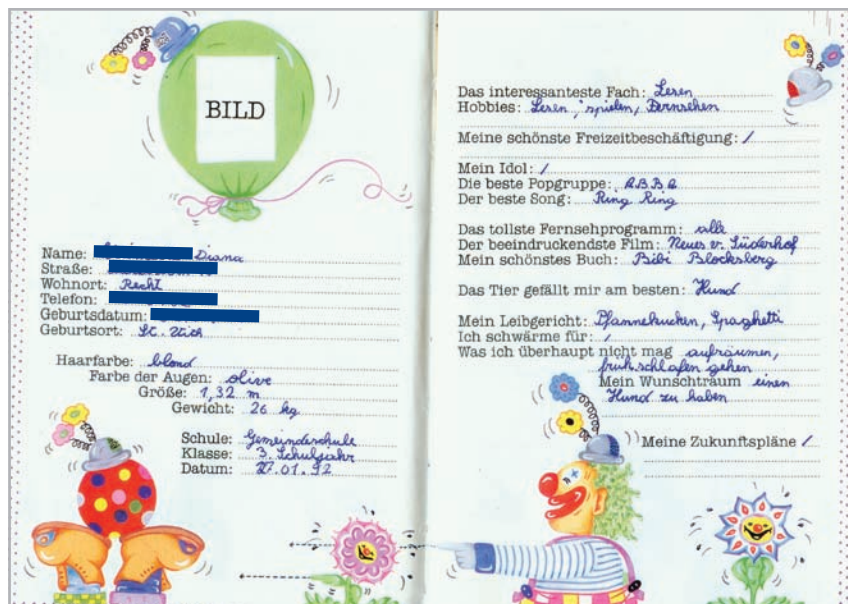 BILD
Name: Diana
Straße:
Wohnort: Recht
Telefon:
Geburtsdatum:
Geburtsort: St. Vith
Haarfarbe: blond
Farbe der Augen: olive
Größe: 1,32 m
Gewicht: 26 kg
Schule: Gemeindeschule
Klasse: 3. Schuljahr
Datum: 27.01.92
Das interessanteste Fach: Lesen
Hobbies: Lesen, spielen, Fernsehen
Meine schönste Freizeitbeschäftigung: /
Mein Idol: /
Die beste Popgruppe: ABBA
Der beste Song: Ring Ring
Das tollste Fernsehprogramm: alle
Der beeindruckendste Film: Neues v. Süderhof
Mein schönstes Buch: Bibi Blocksberg
Das Tier gefällt mir am besten: Hund
Mein Leibgericht: Pfannekuchen, Spaghetti
Ich schwärme für: /
Was ich überhaupt nicht mag aufräumen,
früh schlafen gehen
Mein Wunschtraum einen
Hund zu haben
Meine Zukunftspläne /